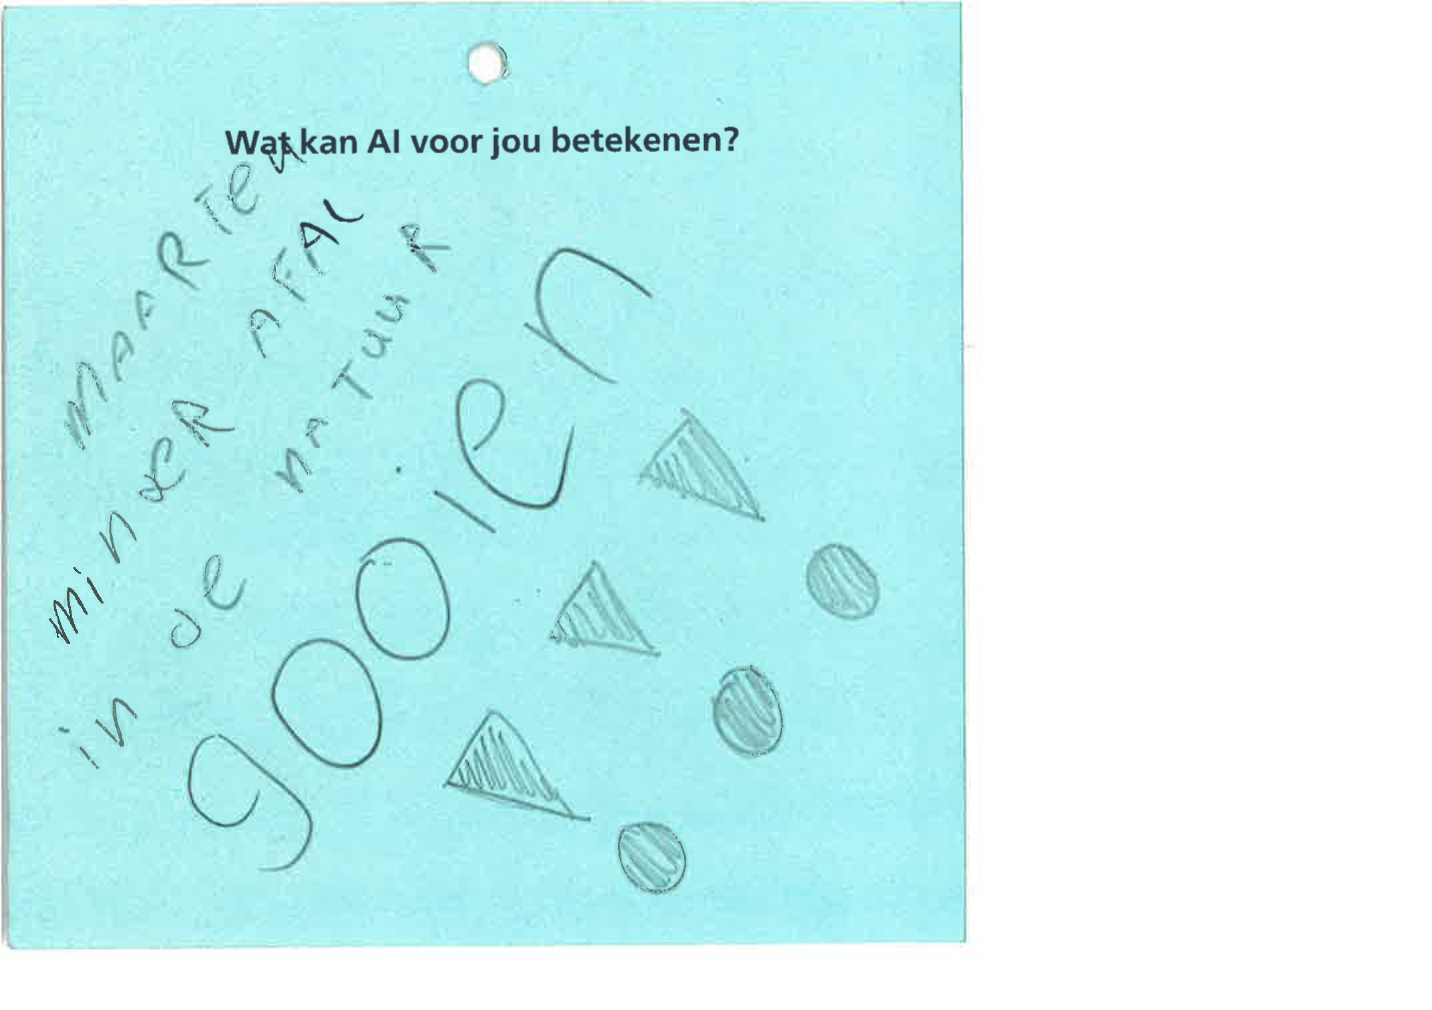 Wat kan AI voor jou betekenen?
MAARTEN
MiNDER AFAL
in de nATuuR
gooien